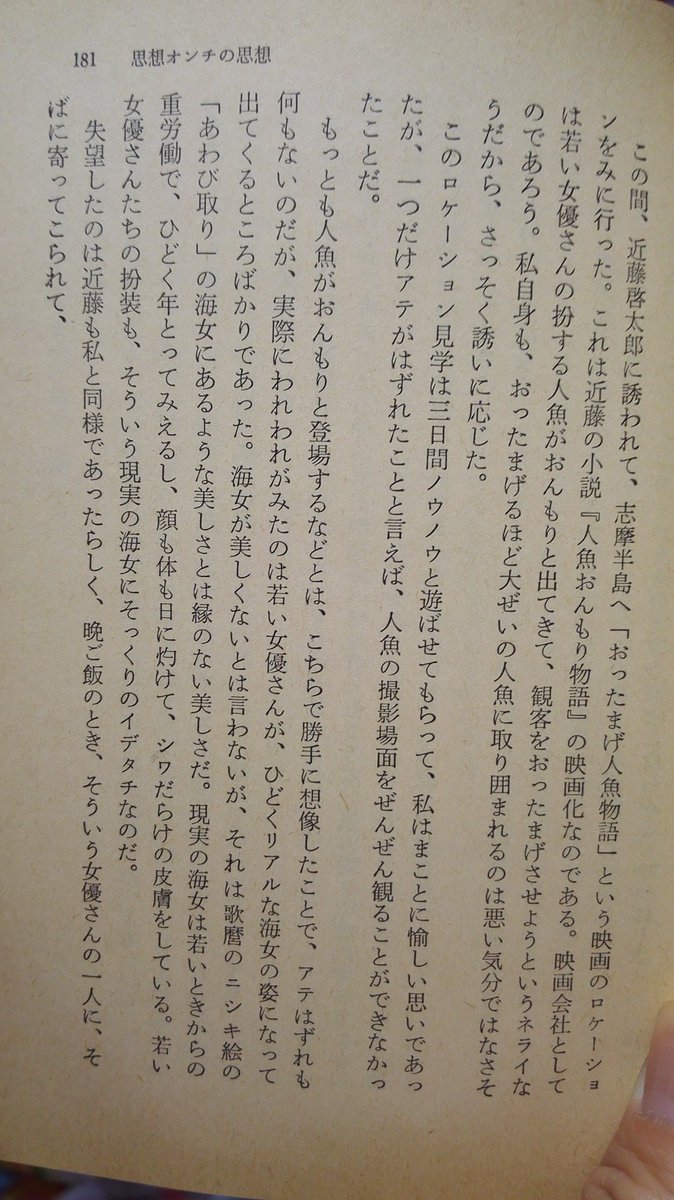 181　思想オンチの思想
この間、近藤啓太郎に誘われて、志摩半島へ「おったまげ人魚物語」という映画のロケーショ
ンをみに行った。これは近藤の小説『人魚おんもり物語』の映画化なのである。映画会社として
は若い女優さんの扮する人魚がおんもりと出てきて、観客をおったまげさせようというネライな
のであろう。私自身も、おったまげるほど大ぜいの人魚に取り囲まれるのは悪い気分ではなさそ
うだから、さっそく誘いに応じた。
このロケーション見学は三日間ノウノウと遊ばせてもらって、私はまことに愉しい思いであっ
たが、一つだけアテがはずれたことと言えば、人魚の撮影場面をぜんぜん観ることができなかっ
たことだ。
もっとも人魚がおんもりと登場するなどとは、こちらで勝手に想像したことで、アテはずれも
何もないのだが、実際にわれわれがみたのは若い女優さんが、ひどくリアルな海女の姿になって
出てくるところばかりであった。海女が美しくないとは言わないが、それは歌麿のニシキ絵の
「あわび取り」の海女にあるような美しさとは縁のない美しさだ。現実の海女は若いときからの
重労働で、ひどく年とってみえるし、顔も体も日に灼けて、シワだらけの皮膚をしている。若い
女優さんたちの扮装も、そういう現実の海女にそっくりのイデタチなのだ。
失望したのは近藤も私と同様であったらしく、晩ご飯のとき、そういう女優さんの一人に、そ
ばに寄ってこられて、